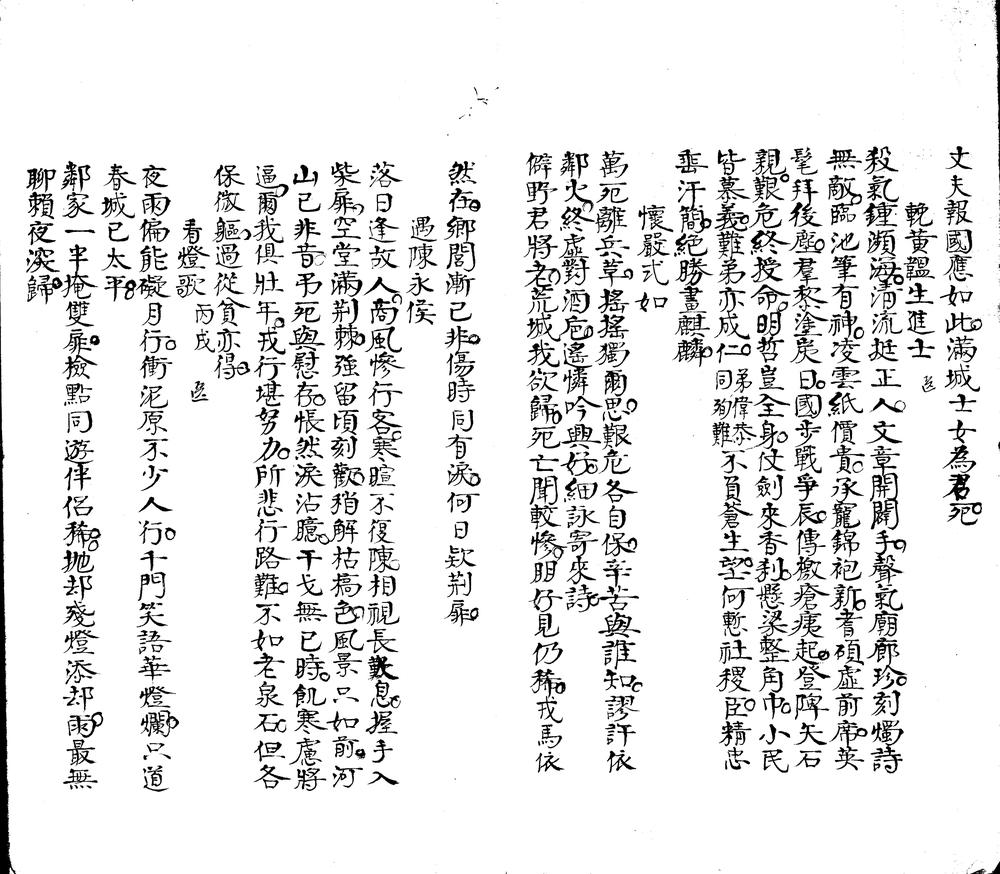 丈夫報國應如此滿城士女為君死
輓黃韞生進士
殺氣纏瀕海清流挺正人文章開闢手聲氣廟廊珍刻燭詩
無敵臨池筆有神凌雲紙價貴承寵錦袍新耆碩虛前席英
髦拜後塵羣黎塗炭日國步戰爭辰傳檄瘡痍起登陴矢石
親艱危終授命明哲豈全身仗劍來香刹懸梁整角巾小民
皆慕義難弟亦成仁弟偉恭同殉難不負蒼生望何慙社稷臣精忠
垂汗簡絕勝畫麒麟
懷嚴式如
萬死離兵革搖搖獨爾思艱危各自保辛苦與誰知謬許依
鄰火終虛對酒卮遙憐吟興好細詠寄來詩
僻野君將老荒城我欲歸死亡聞較慘朋好見仍稀戎馬依
然在鄉閭漸已非傷時同有淚何日欵荆扉
遇陳永侯
落日逢故人商風慘行客寒暄不復陳相視長歎息握手入
柴扉空堂滿荆棘強留頃刻歡稍解枯槁色風景只如前河
山已非昔弔死與慰存悵然淚沾臆干戈無已時飢寒慮將
逼爾我俱壯年戎行堪努力所悲行路難不如老泉石但各
保微軀過從貧亦得
看燈歌 丙戌
夜雨偏能礙月行衝泥原不少人行千門笑語華燈爛只道
春城已太平
鄰家一半掩雙扉檢點同遊伴侶稀拋却殘燈添却雨最無
聊賴夜深歸